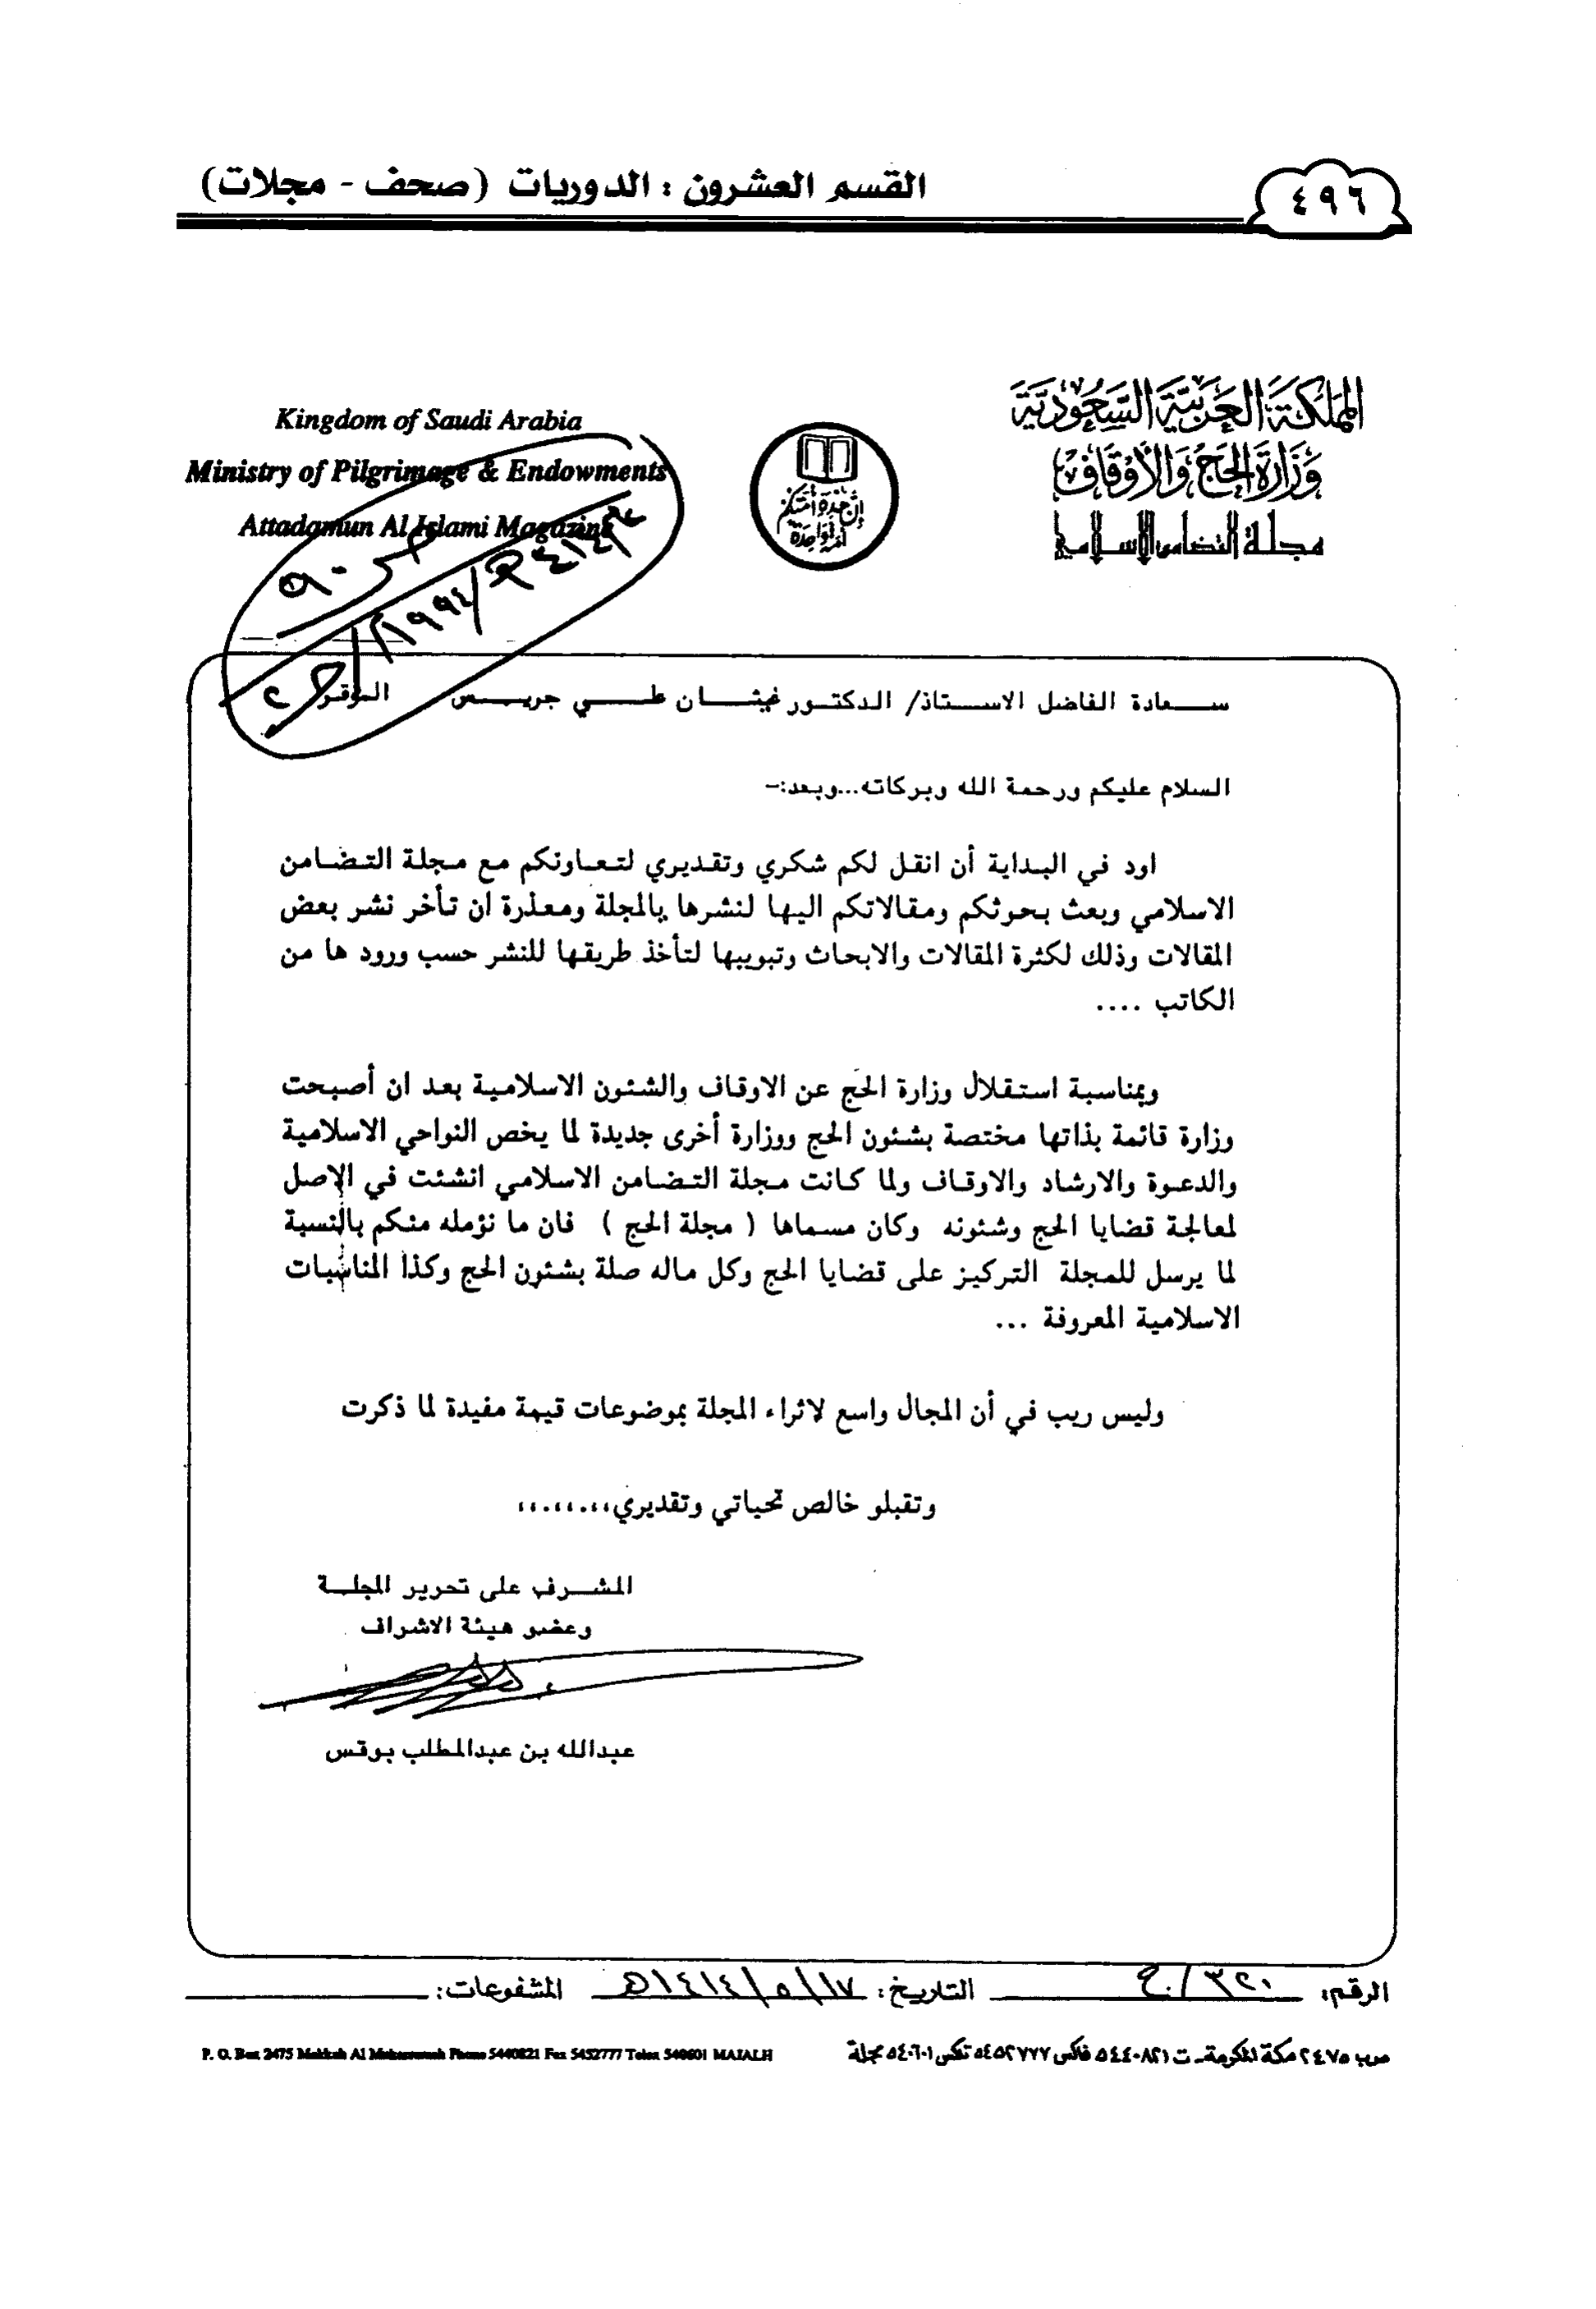 القسم العشرون : الدوريات (صحف - مجلات)
٤٩٦
المملكة العربية السعودية
وزارة الحج والأوقاف
مجلة التضامن الاسلامي
Kingdom of Saudi Arabia
Ministry of Pilgrimage & Endowments
Attadamun Al Islami Magazine
إن هذه أمتكم
أمة واحدة
سعادة الفاضل الاستاذ/ الدكتور غيثان علي جريس الموقر
السلام عليكم ورحمة الله وبركاته...وبعد:-
اود في البداية أن انقل لكم شكري وتقديري لتعاونكم مع مجلة التضامن
الاسلامي وبعث بحوثكم ومقالاتكم اليها لنشرها بالمجلة ومعذرة ان تأخر نشر بعض
المقالات وذلك لكثرة المقالات والابحاث وتبويبها لتأخذ طريقها للنشر حسب ورود ها من
الكاتب ....
وبمناسبة استقلال وزارة الحج عن الاوقاف والشئون الاسلامية بعد ان أصبحت
وزارة قائمة بذاتها مختصة بشئون الحج ووزارة أخرى جديدة لما يخص النواحي الاسلامية
والدعوة والارشاد والاوقاف ولما كانت مجلة التضامن الاسلامي انشئت في الاصل
لمعالجة قضايا الحج وشئونه وكان مسماها ( مجلة الحج ) فان ما نؤمله منكم بالنسبة
لما يرسل للمجلة التركيز على قضايا الحج وكل ماله صلة بشئون الحج وكذا المناسبات
الاسلامية المعروفة ...
وليس ريب في أن المجال واسع لاثراء المجلة بموضوعات قيمة مفيدة لما ذكرت
وتقبلو خالص تحياتي وتقديري،،،.،،.،،
المشرف على تحرير المجلة
وعضو هيئة الاشراف
عبدالله بن عبدالمطلب بوقس
الرقم: ٣٢١/ح التاريخ: ١٧/٥/١٤١٤هـ المشفوعات:
ص.ب ٢٤٧٥ مكة المكرمة - ت ٥٤٤٠٨٢١ فاكس ٥٤٥٢٧٧٧ تلكس ٥٤٠٦٠١ مجلة
P. O. Box 2475 Makkah Al Mukarramah Phone 5440821 Fax 5452777 Telex 540601 MAJALH